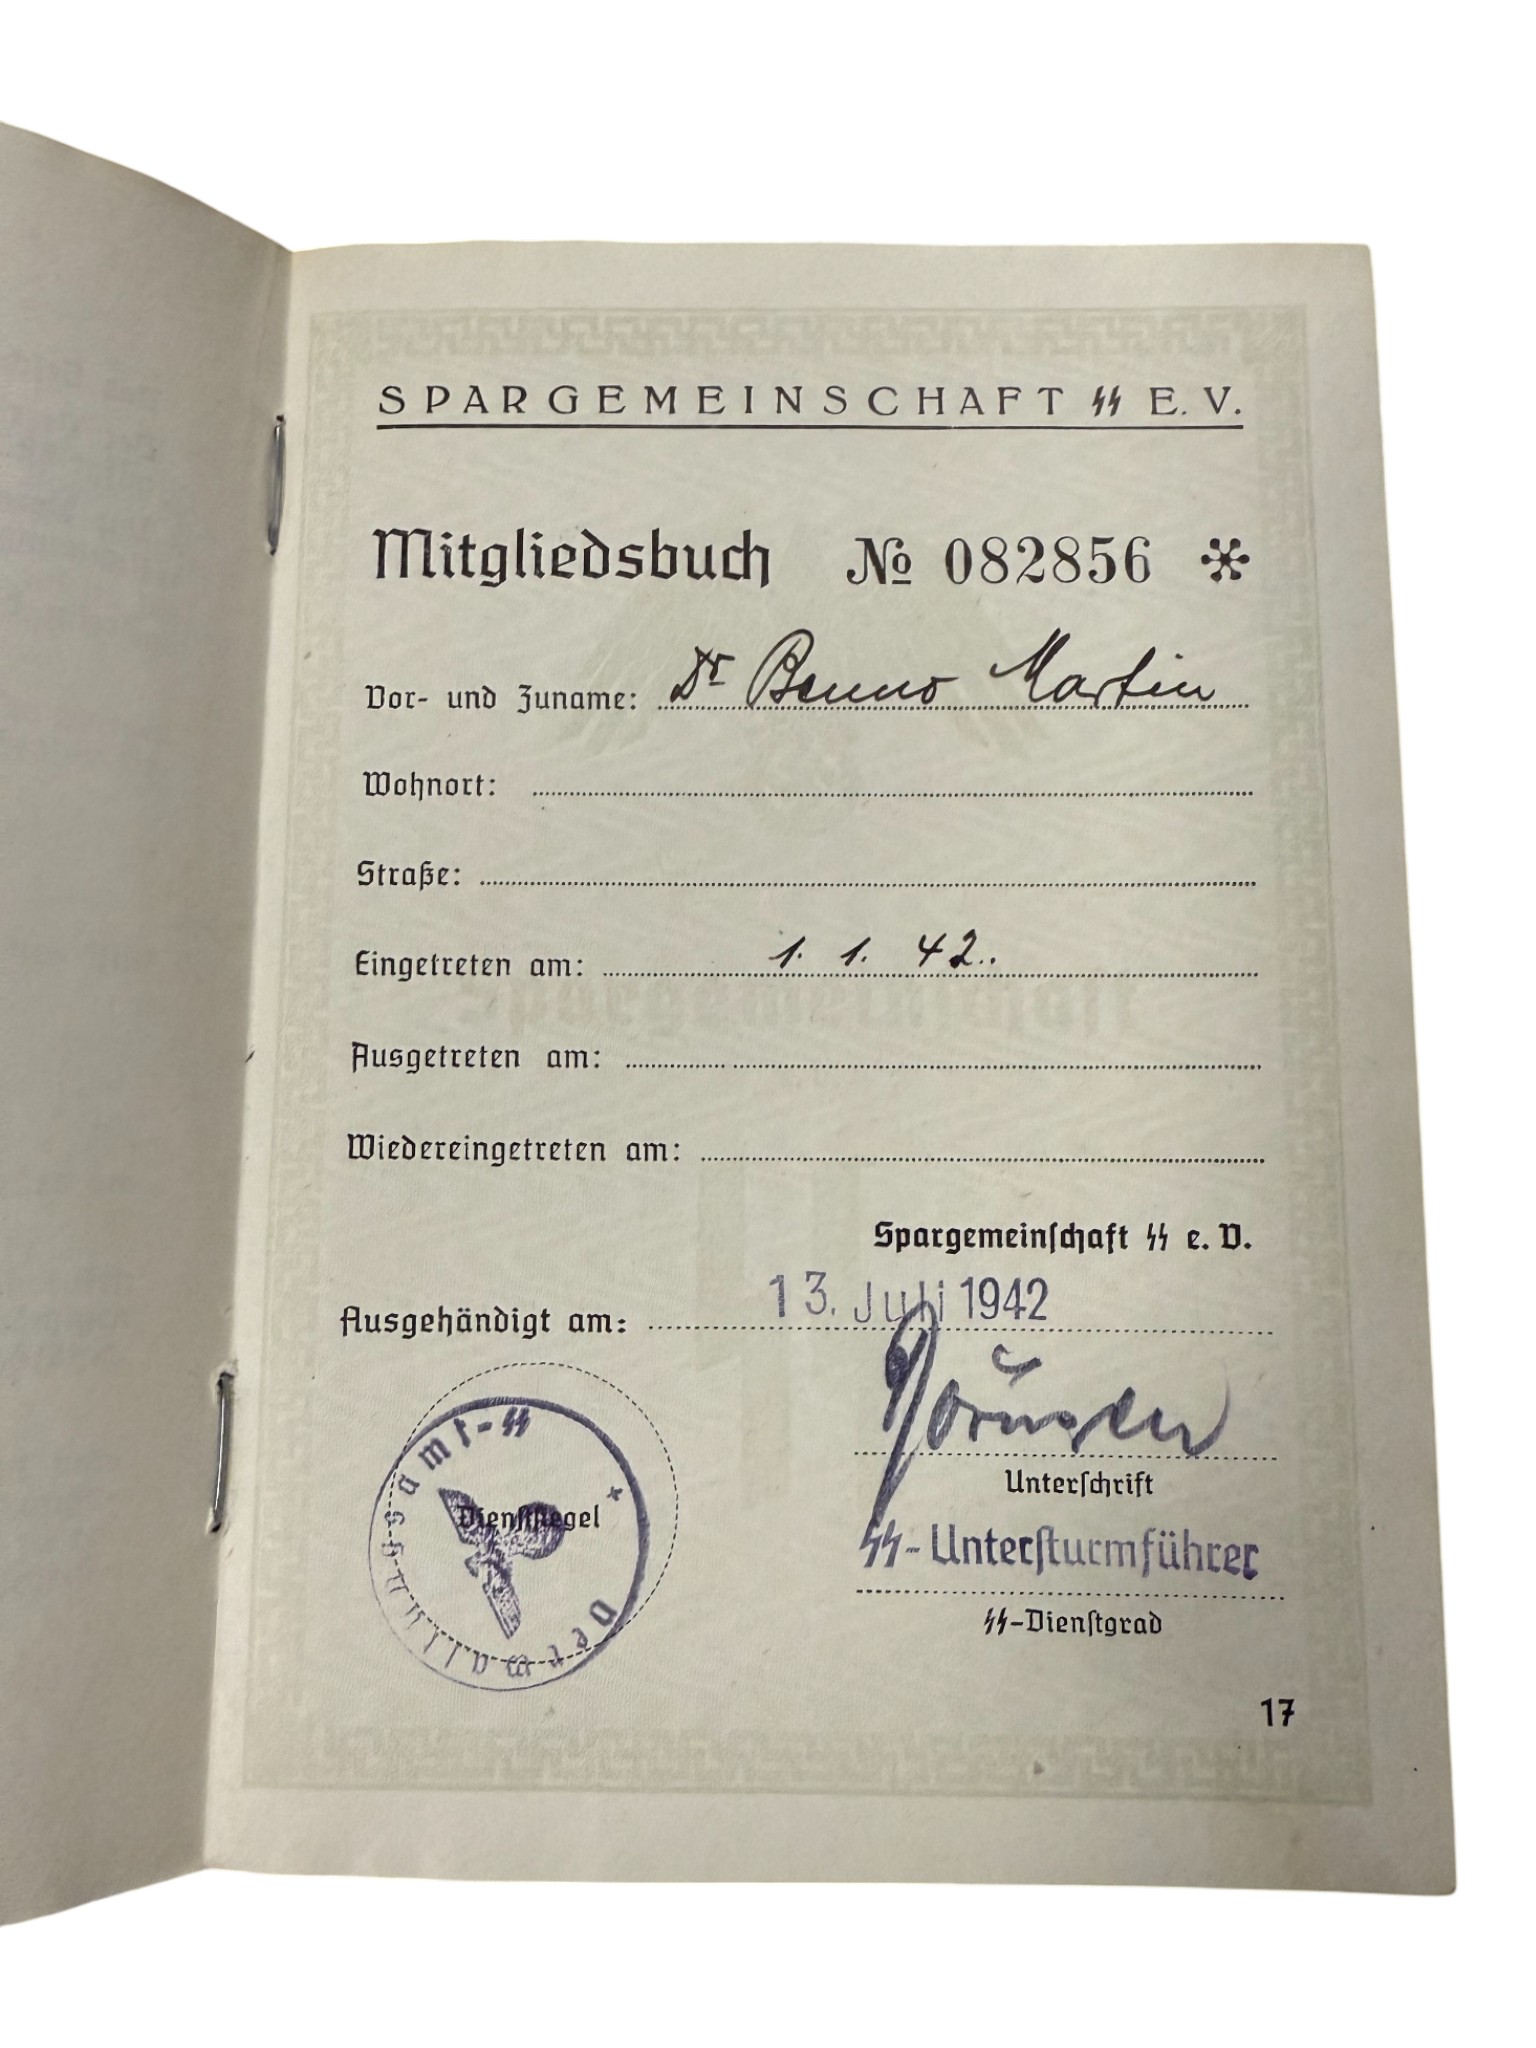 SPARGEMEINSCHAFT ᛋᛋ E. V.
Mitgliedsbuch № 082856 *
Vor- und Zuname: Dr Benno Martin
Wohnort:
Straße:
Eingetreten am: 1. 1. 42.
Spargemeinschaft
Ausgetreten am:
Wiedereingetreten am:
Spargemeinſchaft ᛋᛋ e. V.
Ausgehändigt am: 13. Juli 1942
Unterſchrift
Dienſtſiegel
Verwaltungsamt-ᛋᛋ
ᛋᛋ-Unterſturmführer
ᛋᛋ-Dienſtgrad
17